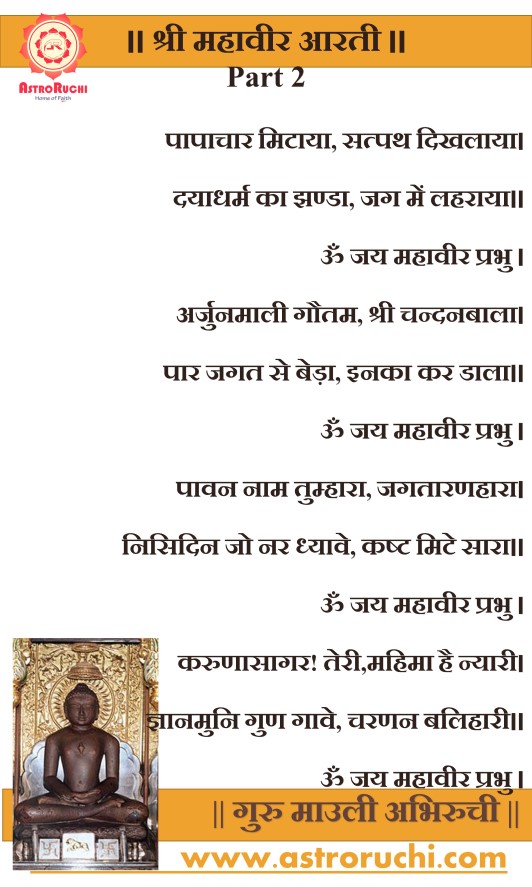 ॥ श्री महावीर आरती ॥
ASTRORUCHI
Home of Faith
Part 2
पापाचार मिटाया, सत्पथ दिखलाया।
दयाधर्म का झण्डा, जग में लहराया॥
ॐ जय महावीर प्रभु ।
अर्जुनमाली गौतम, श्री चन्दनबाला।
पार जगत से बेड़ा, इनका कर डाला॥
ॐ जय महावीर प्रभु ।
पावन नाम तुम्हारा, जगतारणहारा।
निसिदिन जो नर ध्यावे, कष्ट मिटे सारा॥
ॐ जय महावीर प्रभु ।
करुणासागर! तेरी,महिमा है न्यारी।
ज्ञानमुनि गुण गावे, चरणन बलिहारी॥
ॐ जय महावीर प्रभु ।
|| गुरु माउली अभिरुची ||
www.astroruchi.com